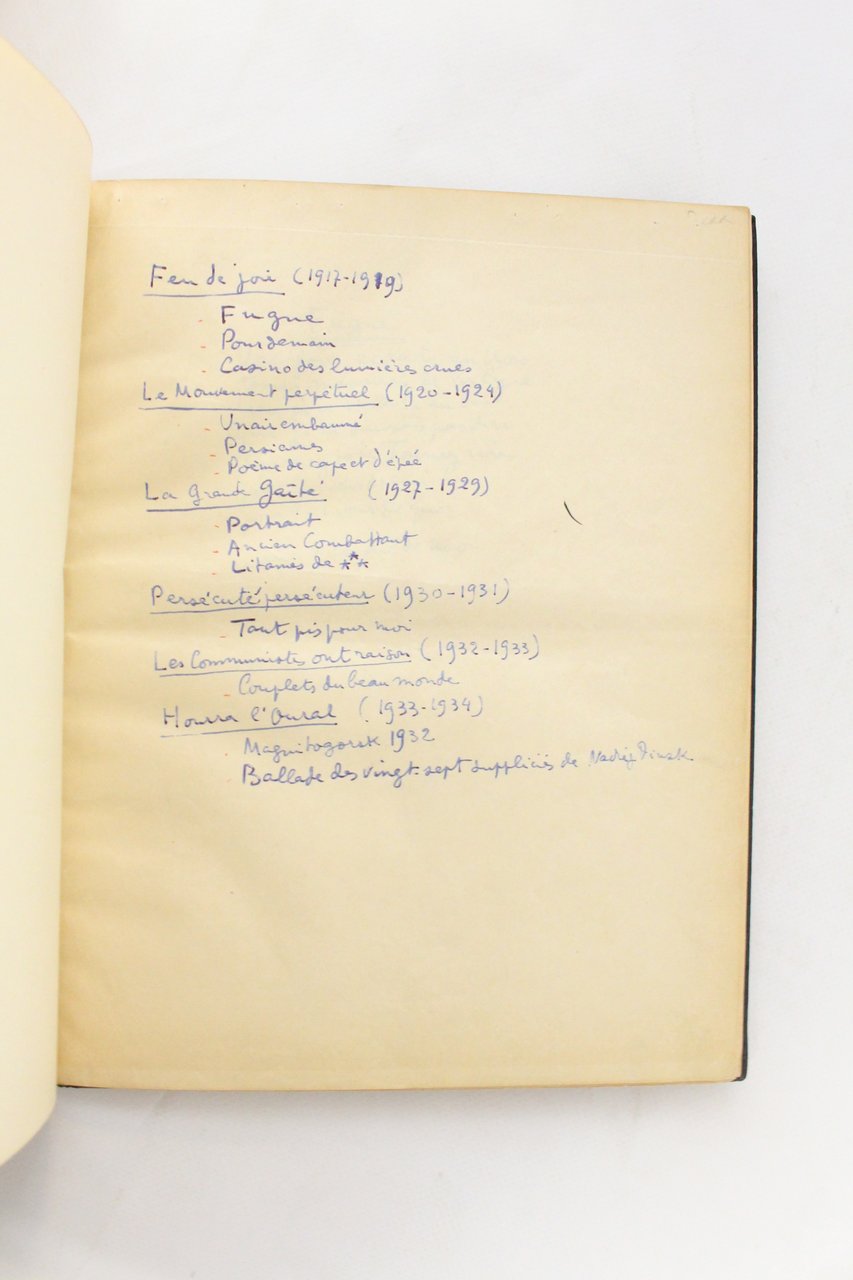 Feu de joie (1917-1919)
- Fugue
- Pour demain
- Casino des lumières crues
Le Mouvement perpétuel (1920-1924)
- Un air embaumé
- Persiennes
- Poème de cape et d'épée
La Grande Gaîté (1927-1929)
- Portrait
- Ancien Combattant
- Litanies de ***
Persécuté persécuteur (1930-1931)
- Tant pis pour moi
Les Communistes ont raison (1932-1933)
- Couplets du beau monde
Hourra l'Oural (1933-1934)
- Magnitogorsk 1932
- Ballade des vingt-sept suppliciés de Nadiejdinsk